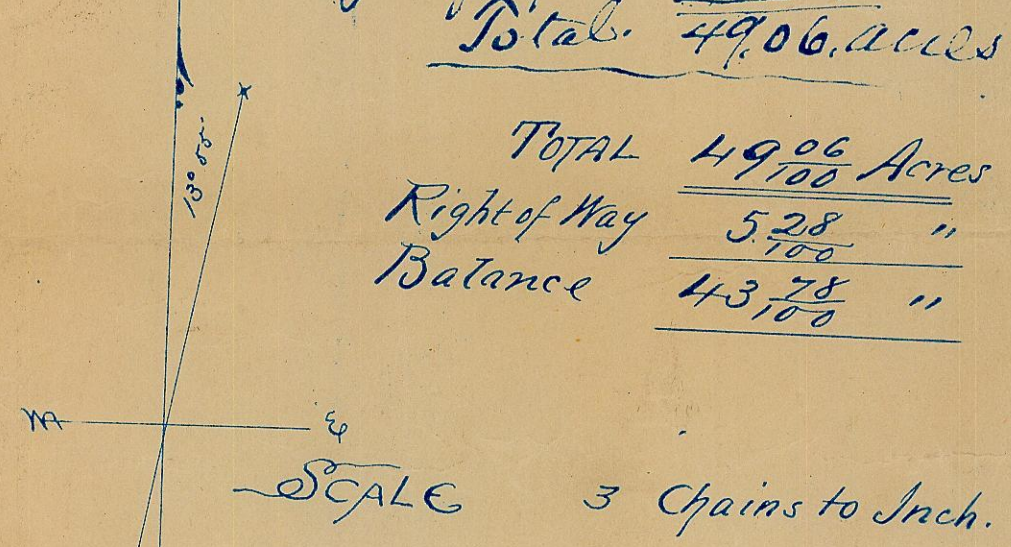 Total. 49.06. acres
13° 55'
TOTAL 49 06/100 Acres
Right of Way 5 28/100 "
Balance 43 78/100 "
W E
SCALE 3 Chains to Inch.